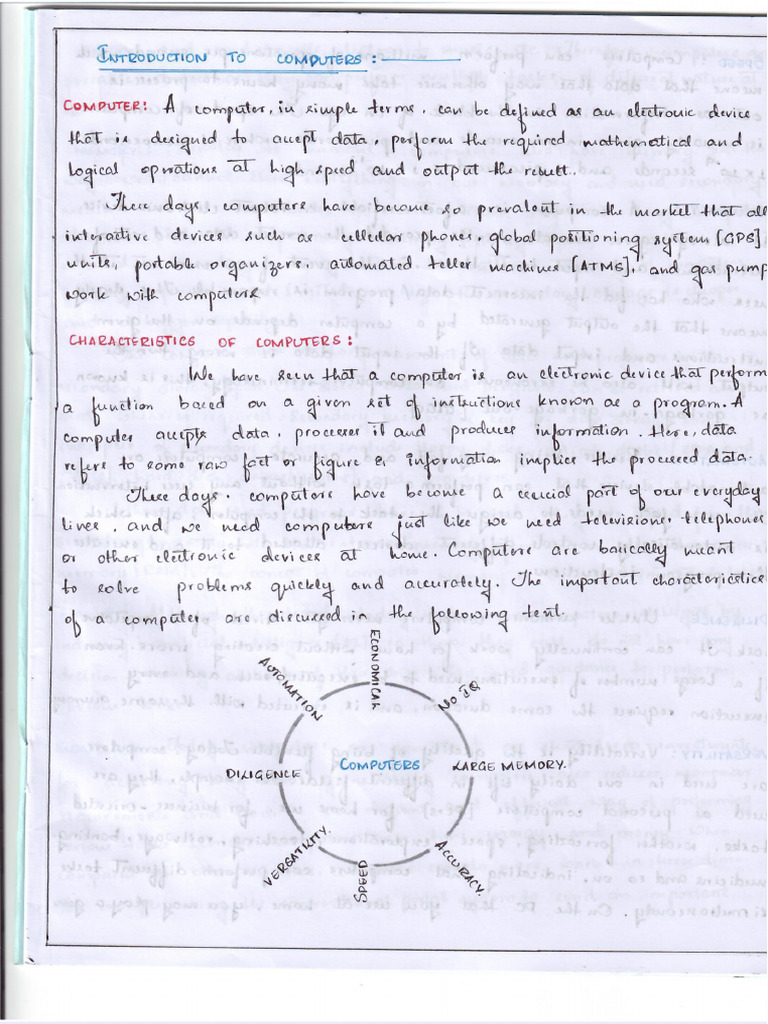 INTRODUCTION TO COMPUTERS:
COMPUTER: A computer, in simple terms, can be defined as an electronic device
that is designed to accept data, perform the required mathematical and
logical operations at high speed and output the result.
These days computers have become so prevalent in the market that all
interactive devices such as cellular phones, global positioning system [GPS]
units, portable organizers, automated teller machines [ATMS], and gas pump
work with computers
CHARACTERISTICS OF COMPUTERS:
We have seen that a computer is an electronic device that perform
a function based on a given set of instructions known as a program. A
computer accepts data, processes it and produces information. Here, data
refers to some raw fact or figure & information implies the processed data.
These days, computers have become a crucial part of our everyday
lives, and we need computers just like we need televisions, telephones
or other electronic devices at home. Computers are basically meant
to solve problems quickly and accurately. The important characteristics
of computer are discussed in the following text.
ECONOMICAL
AUTOMATION
NO IQ
DILIGENCE
COMPUTERS
LARGE MEMORY.
VERSATILITY.
SPEED
ACCURACY.